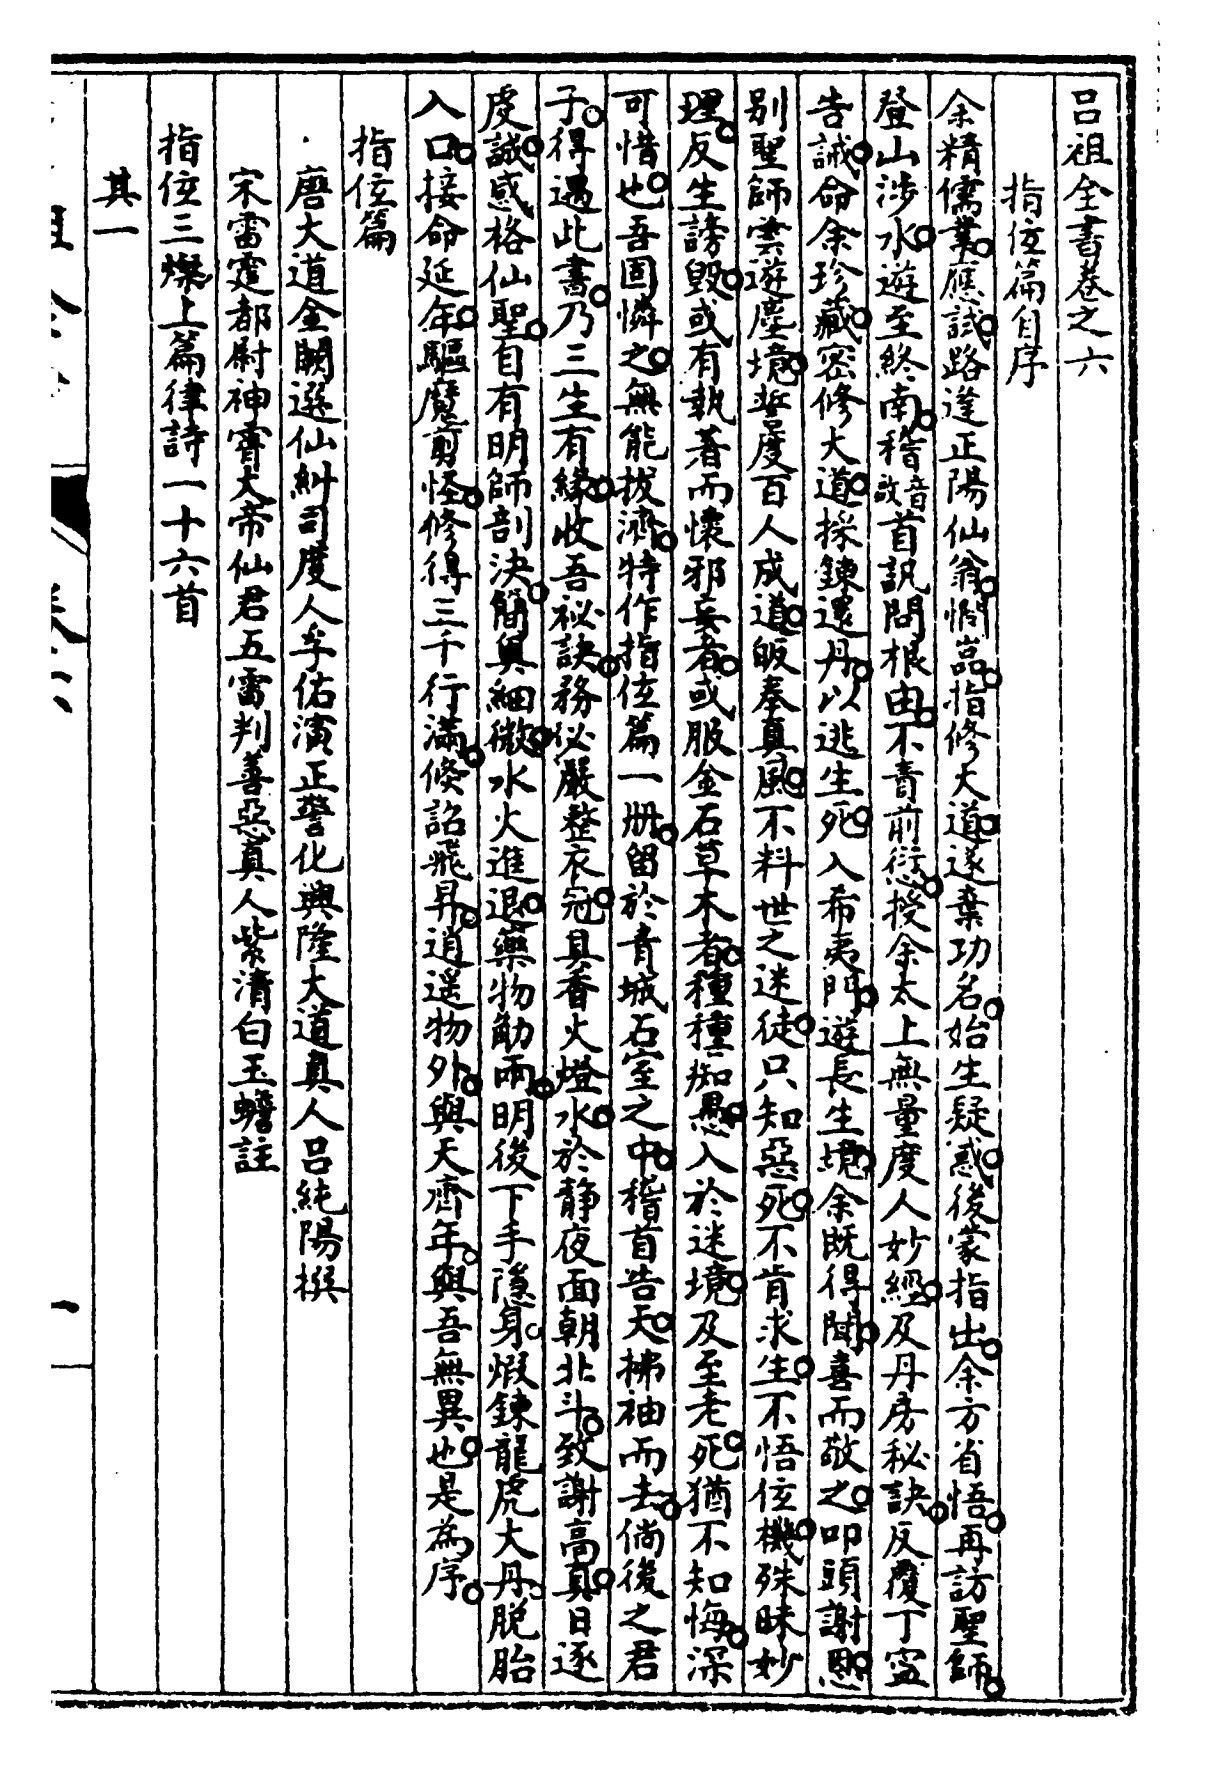 呂祖全書卷之六
指㐰篇自序
余精儒業應試路逢正陽仙翁憫㗊指修大道遂棄功名始生疑惑後蒙指出余方省悟再訪聖師
登山涉水遊至終南稽音啟首訊問根由不責前愆授余太上無量度人妙經及丹房秘訣反覆丁寍
告誡命余珍藏密修大道採鍊還丹以逃生死入希夷門遊長生境余既得聞喜而敬之叩頭謝恩
別聖師雲遊塵境誓度百人成道皈奉真風不料世之迷徒只知惡死不肯求生不悟㐰機殊昧妙
理反生謗毀或有執著而懷邪妄者或服金石草木者種種痴愚入於迷境及至老死猶不知悔深
可惜也吾固憐之無能拔濟特作指㐰篇一册留於青城石室之中稽首告天拂袖而去倘後之君
子得遇此書乃三生有緣收吾祕訣務必嚴整衣冠具香火燈水於靜夜面朝北斗致謝高真日逐
虔誠感格仙聖自有明師剖決簡與細微水火進退藥物觔兩明後下手隱身煆鍊龍虎大丹脫胎
入口接命延年驅魔剪怪修得三千行滿候詔飛昇逍遥物外與天齊年與吾無異也是為序
指㐰篇
唐大道金闕選仙糾司度人孚佑演正警化興隆大道真人呂純陽撰
宋雷霆都尉神霄大帝仙君五雷判善惡真人紫清白玉蟾註
指㐰三燦上篇律詩一十六首
其一